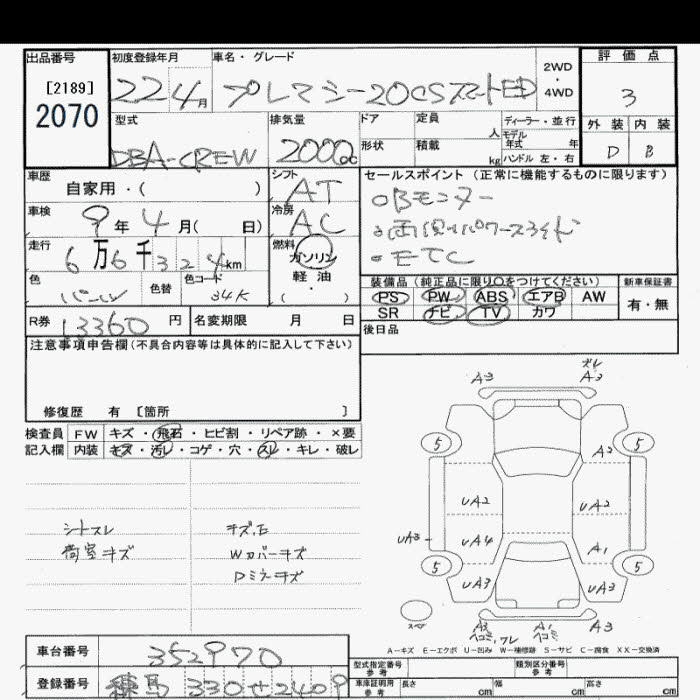 出品番号
[2189]
2070
初度登録年月
22 4月
車名・グレード
プレマシー20CSスマートED
2WD
・
4WD
評価点
3
外装 内装
D B
型式
DBA-CREW
排気量
2000cc
ドア
形状
定員
人
積載
kg
ディーラー・並行
モデル
年式 年
ハンドル 左・右
車歴
自家用・( )
シフト
AT
車検
9年4月( 日)
冷房
AC
走行
6万6千324km
燃料
ガソリン
軽油
( ・ )
色
パール
色替
色コード
34K
R券
13360円
名変期限 月 日
セールスポイント(正常に機能するものに限ります)
○Bモニター
○両側パワースライド
○ETC
装備品(純正品に限り○をつけてください)
PS PW ABS エアB AW
SR ナビ TV カワ
新車保証書
有・無
後日品
注意事項申告欄(不具合内容等は具体的に記入して下さい)
修復歴 有 [箇所 ]
検査員
記入欄
FW キズ・飛石・ヒビ割・リペア跡・×要
内装 キズ・汚レ・コゲ・穴・スレ・キレ・破レ
シートスレ
荷室キズ
キズ,E
Wカバーキズ
Dミラーキズ
A3
ズレ
A3
5 5
A2
UA2 UA2
UA3 UA4 A1
5 5
UA3 UA3
スペア
A3
ヘコミ,ワレ
A1
ヘコミ
A3
A-キズ E-エクボ U-凹み W-補修跡 S-サビ C-腐食 XX-交換済
車台番号
352970
登録番号
練馬 330 せ 2409
型式指定番号
参考
類別区分番号
参考
車庫証明用
参考
長さ cm
幅 cm
高さ cm